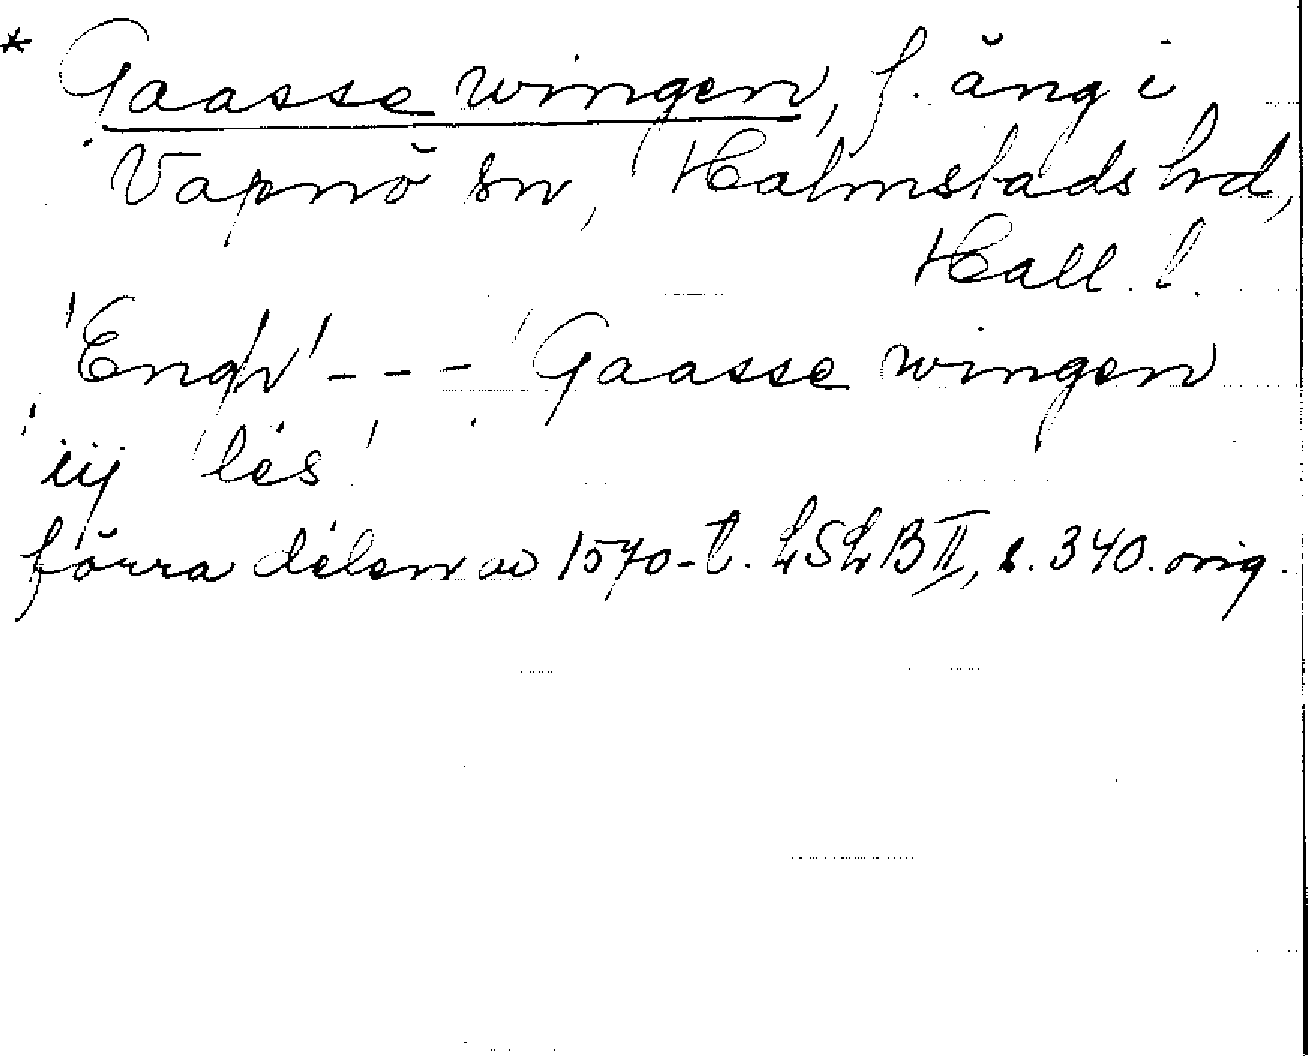 * Gaasse wingen, f. äng i
Vapnö sn, Halmstads hd,
Hall. l.
'Engh' - - - 'Gaasse wingen
iij lés'
förra delen av 1570-t. LSLB II, s. 340. orig.